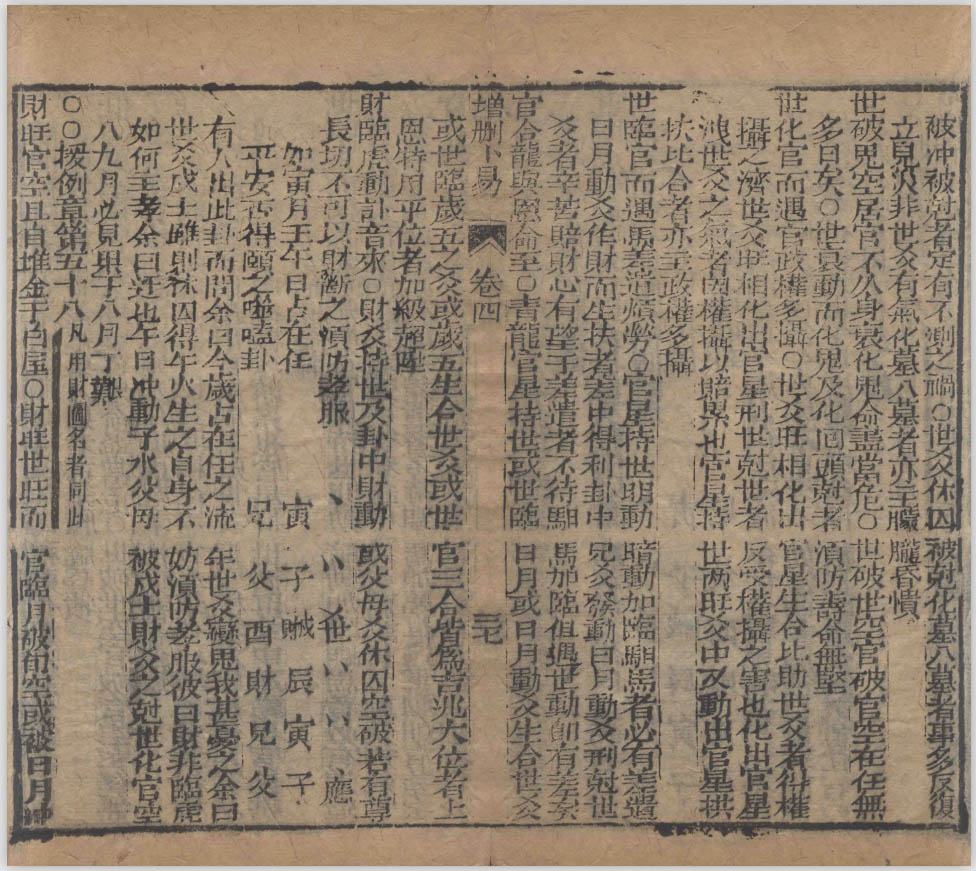 被冲被尅者定有不測之禍○世爻休囚被尅化墓入墓者事多反復
立見災非世爻有氣化墓入墓者亦主朦朧昏憒
世破鬼空居官不久身衰化鬼命盡當危○世破世空官破官空在任無
多日矣○世衰動而化鬼及化回頭尅者須防壽命無堅
世化官而遇官政權多攝○世爻旺相化出官星生合比助世爻者得權
攝之濟世爻旺相化出官星刑世尅世者反受權攝之害也化出官星
洩世爻之氣者因權攝以賠累也官星持世两旺爻中又動出官星拱
扶比合者亦主政權多攝
世臨官而遇馬差遣煩勞○官星持世明動暗動加臨馹馬者必有差遣
日月動爻作財而生扶者差中得利卦中兄爻發動日月動爻刑尅世
爻者辛苦賠財心有望于差遣者不待馹馬加臨但遇世動卽有差矣
官合龍與恩命至○青龍官星持世或世臨日月或日月動爻生合世爻
增刪卜易 卷四 三七
或世臨歲五之爻或歲五生合世爻或世官三合皆爲吉兆大位者上
恩特用平位者加級超陞
財臨虎動訃音來○財爻持世及卦中財動或父母爻休囚空破若有尊
長切不可以財斷之須防孝服
如寅月壬午日占在任
平安否得頤之噬嗑卦
、 八 八世 八 八 、應
寅 子 戌 辰 寅 子
兄 父 財 財 兄 父
有人出此卦而問余曰今歲占在任之流年世爻變鬼我甚憂之余曰
世爻戌土雖則休囚得午火生之自身不妨須防孝服彼曰財非臨虎
如何主孝余曰近也午日冲動子水父母被戌土財爻之尅世化官空
八九月必見果于八月丁艱
○○援例章第五十八 凡用財圖名者同此
財旺官空且自堆金于白屋○財旺世旺而官臨月破旬空或被日月冲